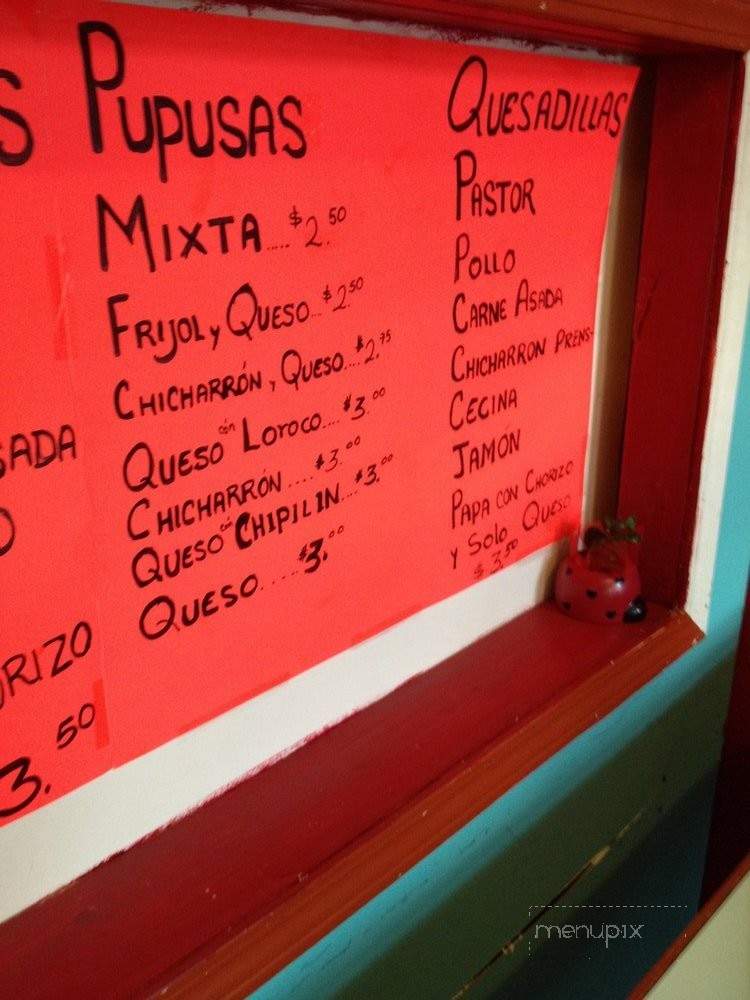 S
SADA
O
ORIZO
3.50
PUPUSAS
MIXTA....$2.50
FRIJOL y QUESO...$2.50
CHICHARRÓN, QUESO....$2.75
QUESO con LOROCO....$3.00
CHICHARRÓN....$3.00
QUESO con CHIPILIN...$3.00
QUESO.....$3.00
QUESADILLAS
PASTOR
POLLO
CARNE ASADA
CHICHARRON PRENS-
CECINA
JAMÓN
PAPA CON CHORIZO
y SOLO QUESO
$3.50
menupix